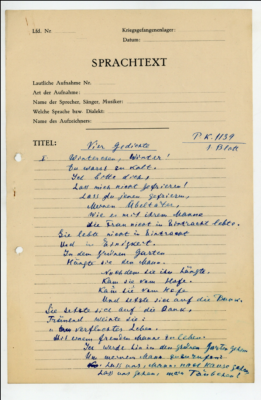 Lfd. Nr.
Kriegsgefangenenlager:
Datum:
SPRACHTEXT
Lautliche Aufnahme No.
Art der Aufnahme:
Name der Sprecher, Sänger, Musiker:
Welche Sprache bzw. Dialekt:
Name des Aufzeichners:
P. K. 1139
1 Blatt
TITEL: Vier Gedichte
Winterchen, Winter!
Du warst zu kalt.
Ich bitte dich,
Lass mich nicht gefrieren!
Lass du jenen gefrieren,
Meinen Übeltäter,
Wie mit ihrem Manne
Die Frau nicht in Eintracht lebte.
Sie lebte nicht in Eintracht
Und in Einigkeit.
In dem grünen Garten
Hängte sie den Mann.
Nachdem sie ihn hängte,
Kam sie vom Hofe,
Kam sie vom Hofe
Und setzte sich auf die Bank.
Sie setzte sich auf die Bank,
verfluchtes Leben.
Mit einem fremden Manne zu leben.
Ich werde hin in den grünen Garten gehen
Um meinen Mann
Lass uns gehen, mein Täubchen!